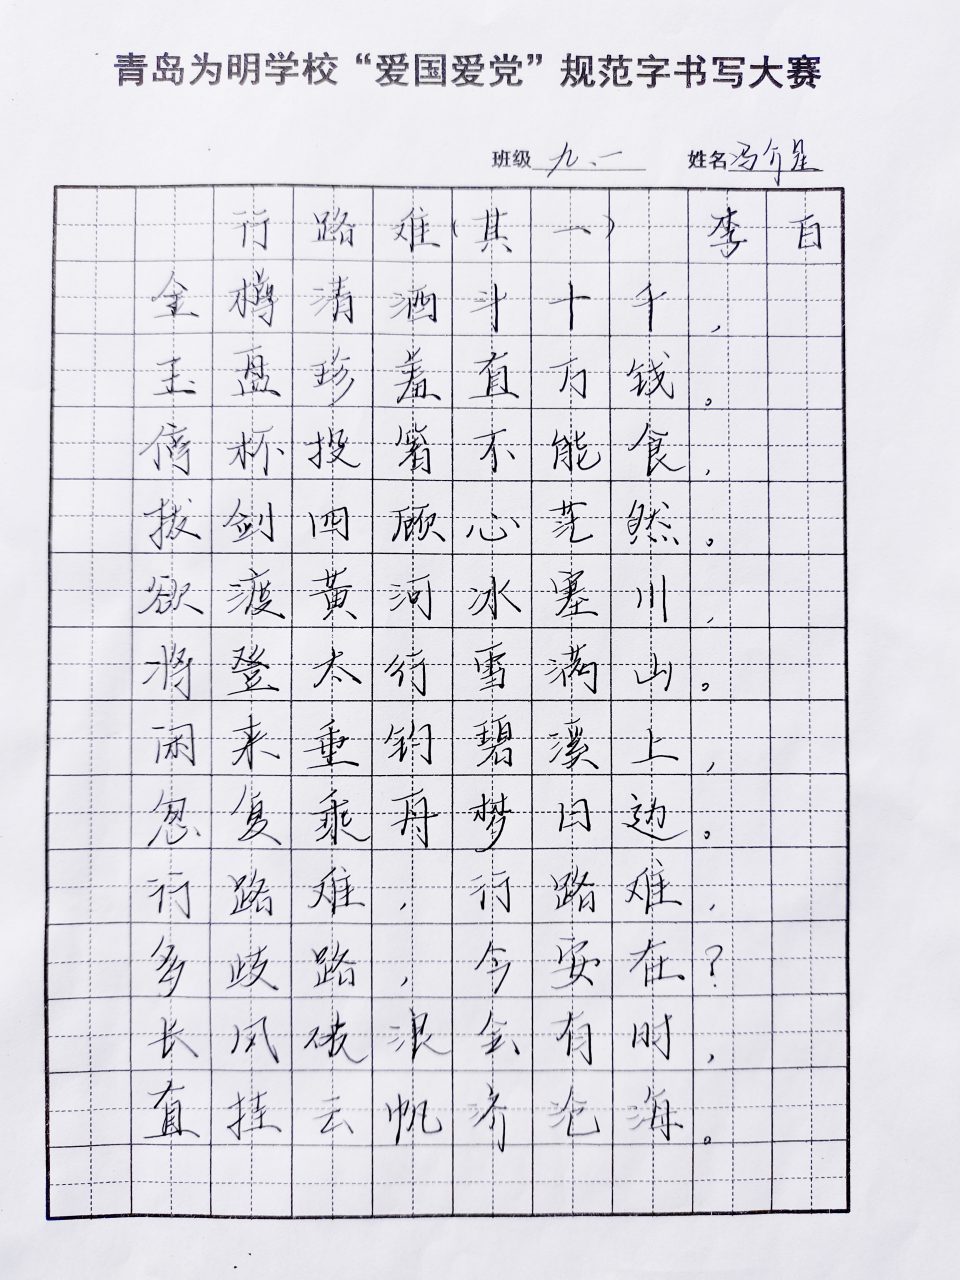 青岛为明学校“爱国爱党”规范字书写大赛
班级 九、一 姓名 冯介星
行路难(其一) 李白
金樽清酒斗十千,
玉盘珍羞直万钱。
停杯投箸不能食,
拔剑四顾心茫然。
欲渡黄河冰塞川,
将登太行雪满山。
闲来垂钓碧溪上,
忽复乘舟梦日边。
行路难,行路难,
多歧路,今安在?
长风破浪会有时,
直挂云帆济沧海。